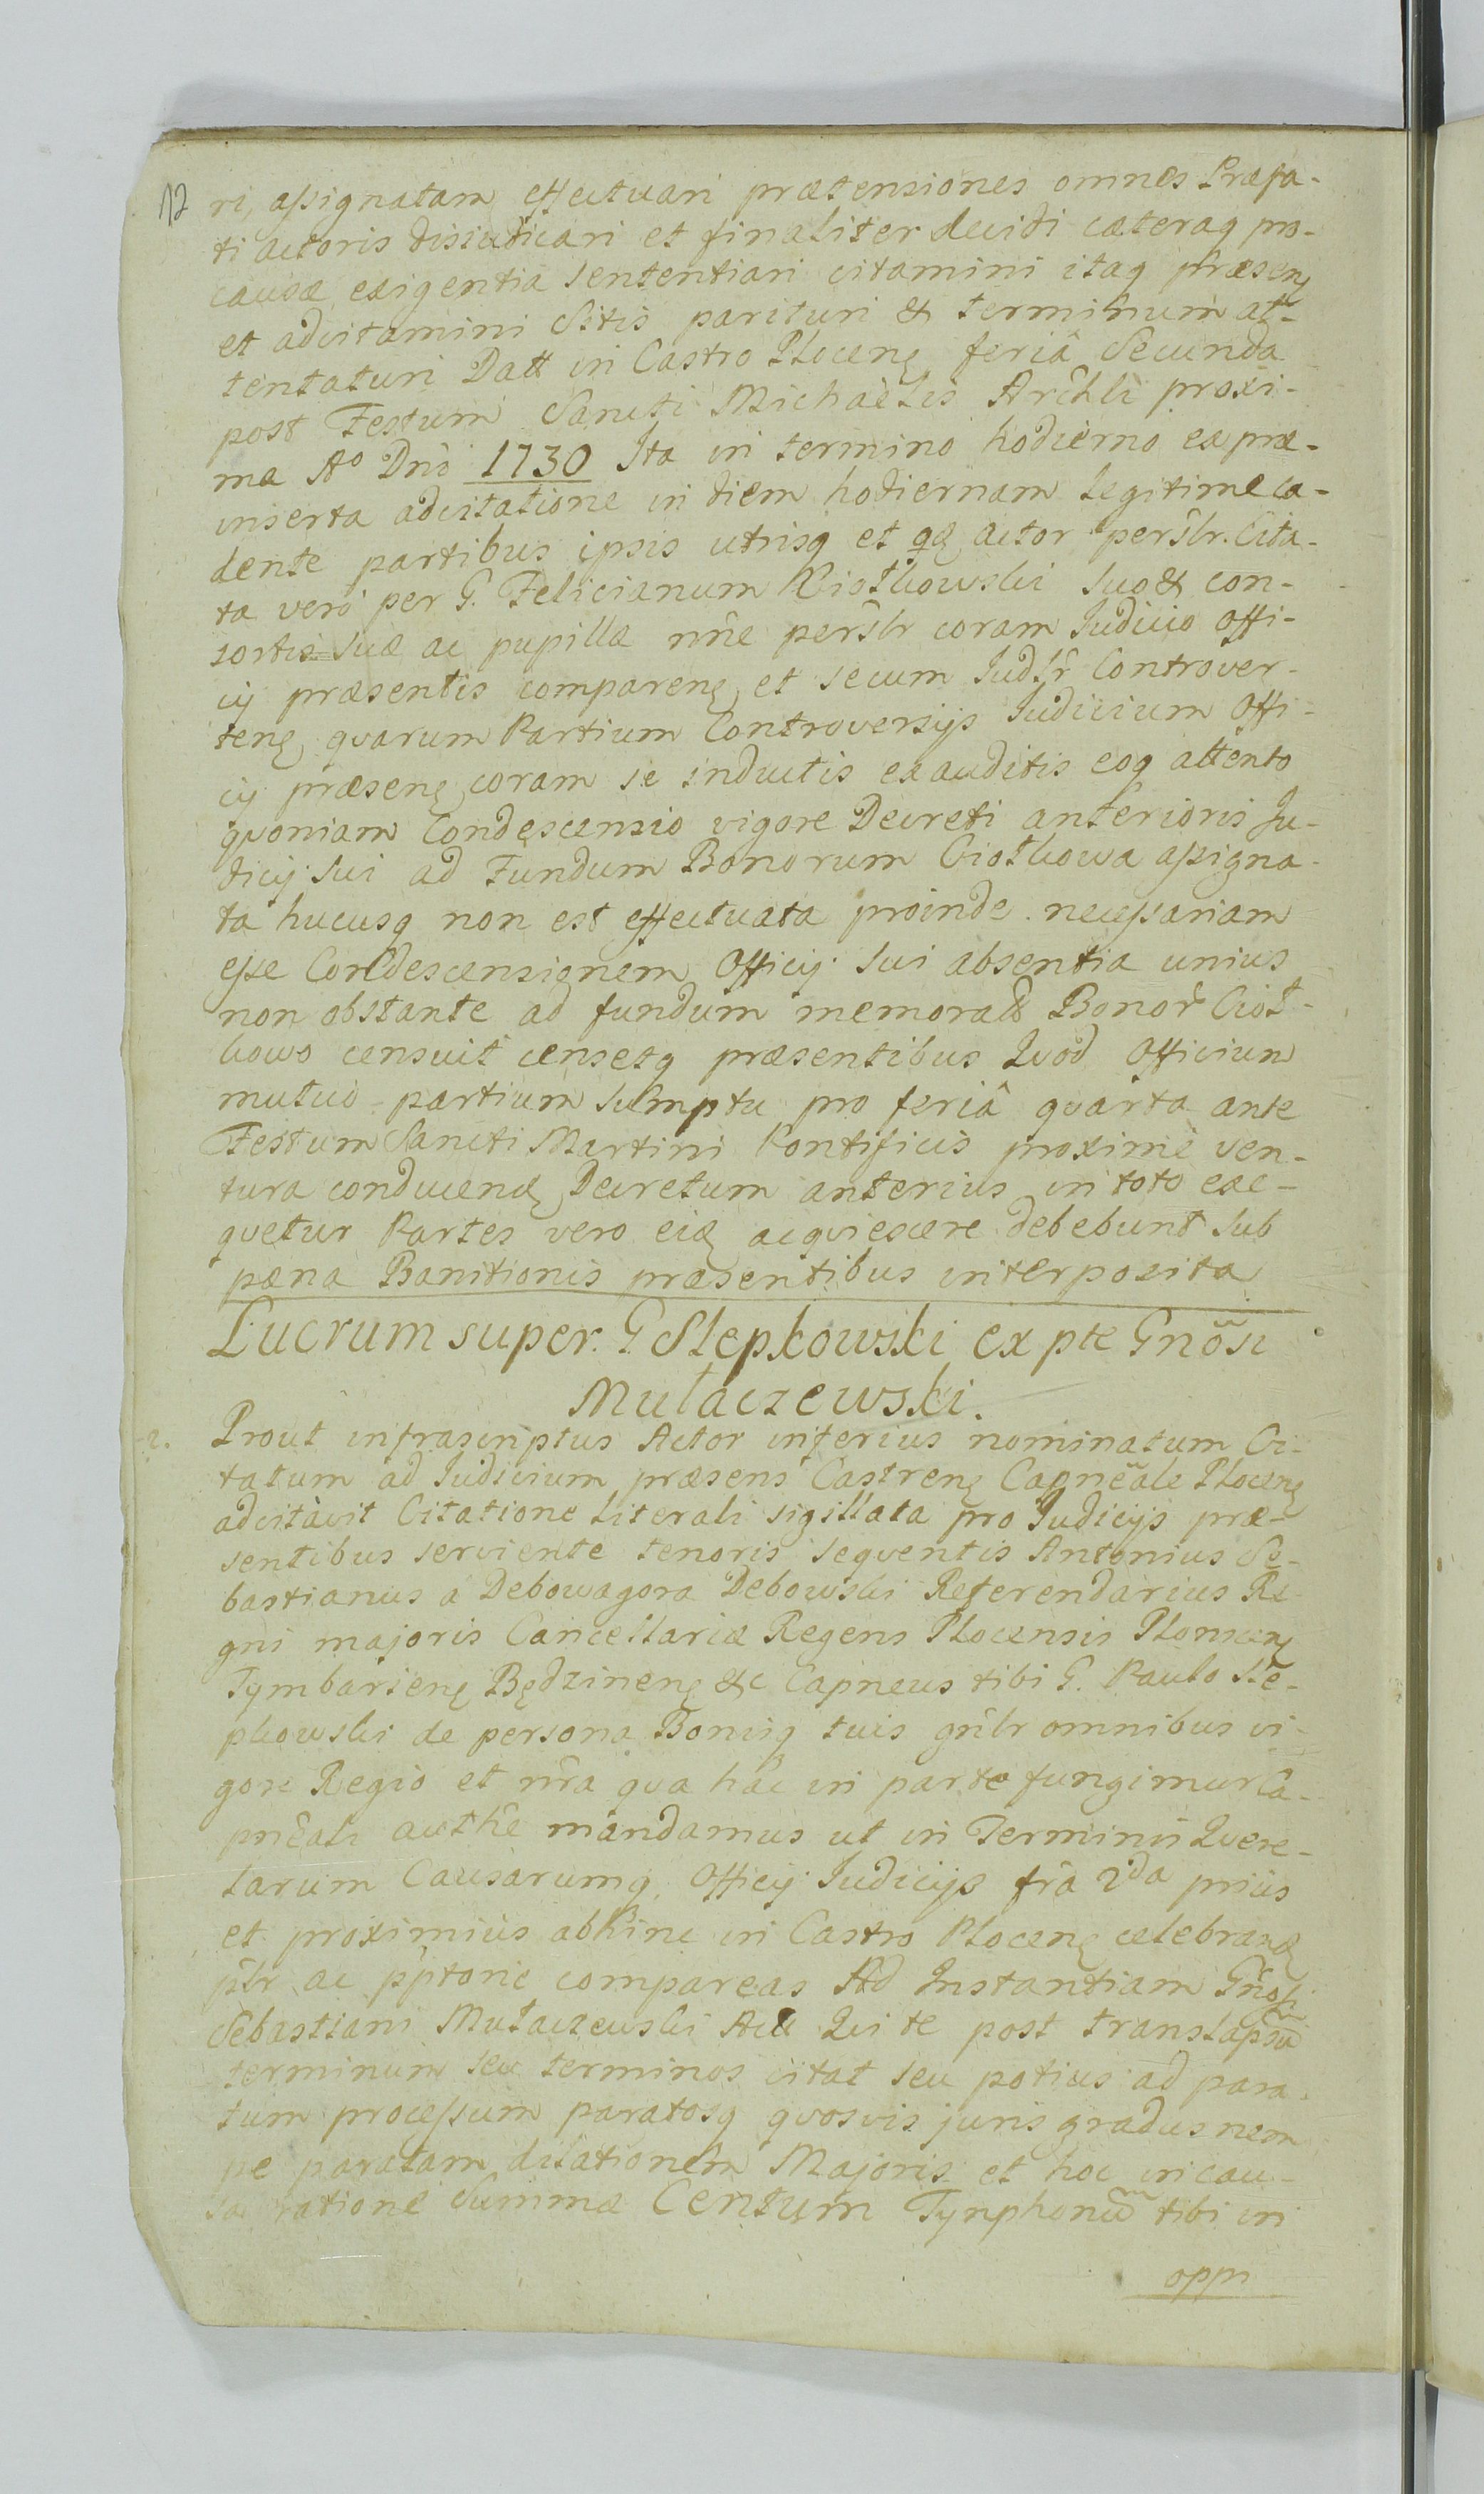 12 ri, assignatam effectuari prætensiones omnes Præfa-
ti actoris disiudicari et finaliter decidi cæteraq pro-
causæ exigentia sententiari citamini itaq præsenȩ
et adcitamini Sitis parituri & terminum at-
tentaturi Datt in Castro Plocenȩ feriâ Secunda
post Festum Sancti Michaelis Archli proxi-
ma Aº Dni 1730 Ita in termino hodierno ex præ-
inserta adcitatione in diem hodiernam legitime ca-
dente partibus ipsis utrisq et qȩ actor persłr. Cita-
ta vero per G. Felicianum Ciołkowski suo & con-
sortis suæ ac pupillæ nñe persłr coram Iudicio offi-
cij præsentis comparenȩ et secum Iudłr Controver-
tenȩ quarum Partium Controversijs Iudicium Offi-
cij præsenȩ coram se inductis exauditis eoq attento
quoniam Condescensio vigore Decreti anterioris Iu-
dicij sui ad Fundum Bonorum Ciołkowa assigna-
ta hucusq non est effectuata proinde necessariam
esse Condescensionem Officij sui absentia unius
non obstante ad fundum memorałł Bonor̃ Cioł-
kowo censuit censetq præsentibus Quod Officium
mutuo partium sumptu pro feriâ quarta ante
Festum Sancti Martini Pontificis proxime ven-
tura conducenȩ Decretum anterius in toto exe-
quetur Partes vero eiȩ acquiescere debebunt sub
pæna Banitionis præsentibus interposita
Lucrum super. G Slepkowski ex pte Gnõsi
Mułaczewski.
2. Prout infrascriptus Actor inferius nominatum Ci-
tatum ad Iudicium præsens Castrenȩ Capnẽale Plocenȩ
adcitavit Citatione literali sigillata pro Iudicijs præ-
sentibus serviente tenoris sequentis Antonius Se-
bastianus a Debowagora Debowski Referendarius Re-
gni majoris Cancellariæ Regens Plocensis Plonscenȩ
Tymbarsenȩ Będzinenȩ &c Capneus tibi G. Paulo Słe-
pkowski de persona Bonisq tuis gñłr omnibus vi-
gore Regio et nr̃a qua hac in parte fungimur Ca-
pnẽali authẽ mandamus ut in Terminis Quere-
larum Causarumq Officij Iudicijs fr̃a 2da prius
et proximius abhinc in Castro Plocenȩ celebranȩ
płr ac pptorie compareas Ad Instantiam Gñosi
Sebastiani Mułaczewski Act Qui te post translapsũ
terminum seu terminos citat seu potius ad para-
tum processum paratosq quosvis juris gradus nem
pe paratam dilationem Majoris et hoc in cau-
sa ratione Summæ Centum Tynphonũ tibi in
oppi